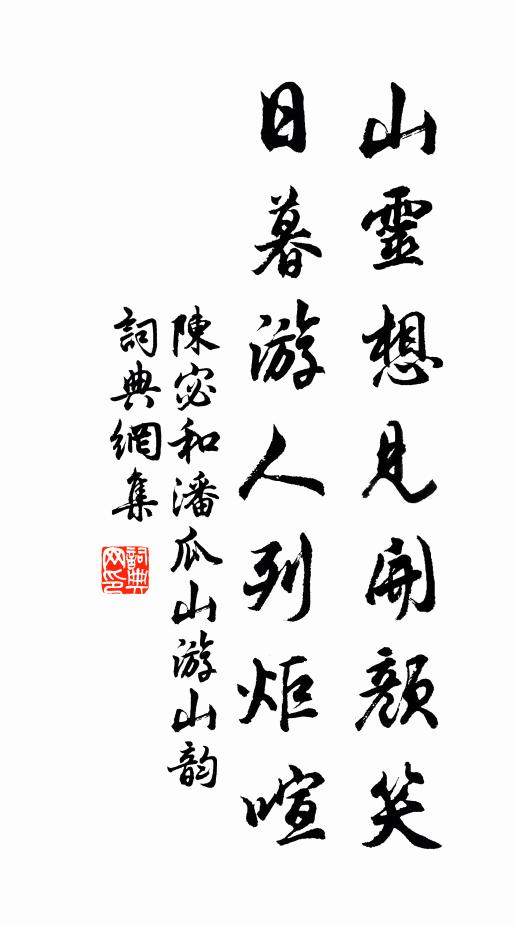 山靈想見開顏笑
日暮游人列炬喧
陳宓和潘瓜山游山韵
詞典網集
詞典网印